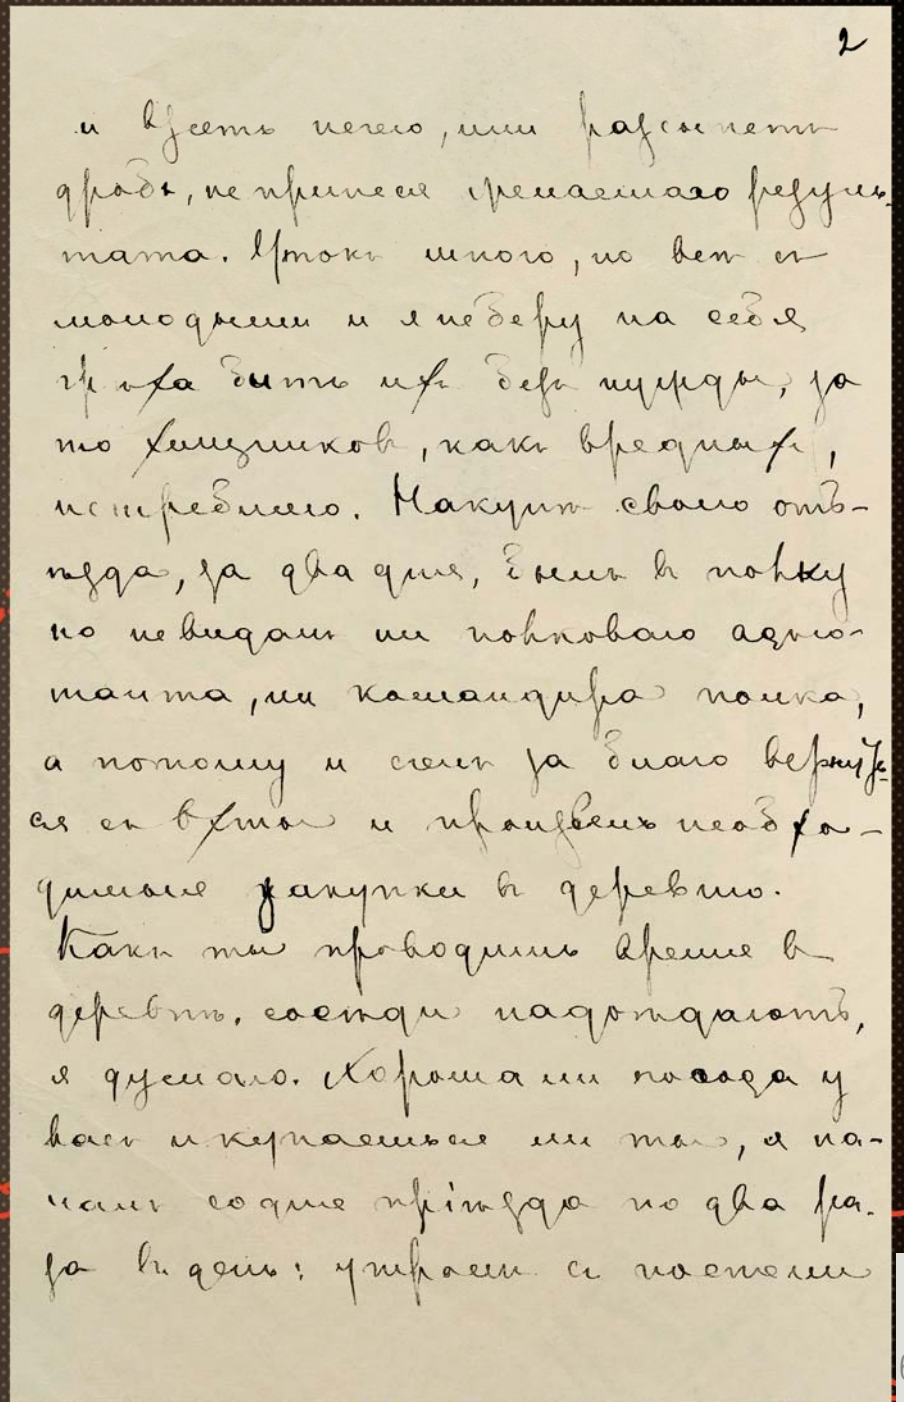 2
и ѣсть нечего, или разсыпетъ
дробь, не принеся желаемаго резуль-
тата. Утокъ много, но всѣ съ
молодыми и я не беру на себя
грѣха бить ихъ безъ нужды, за
то хищниковъ, какъ вредныхъ,
истребляю. Накунѣ своего отъ-
ѣзда, за два дня, былъ въ полку
но не видалъ ни полковаго адъю-
танта, ни командира полка,
а потому и счелъ за благо вернуть-
ся съ вѣхты и произвелъ необхо-
димыя закупки въ деревню.
Какъ ты проводишь время в
деревнѣ, сосѣди надоѣдаютъ,
я думаю. Хороша ли погода у
васъ и купаешься ли ты, я на-
чалъ со дня пріѣзда по два ра-
за въ день: утромъ съ постели